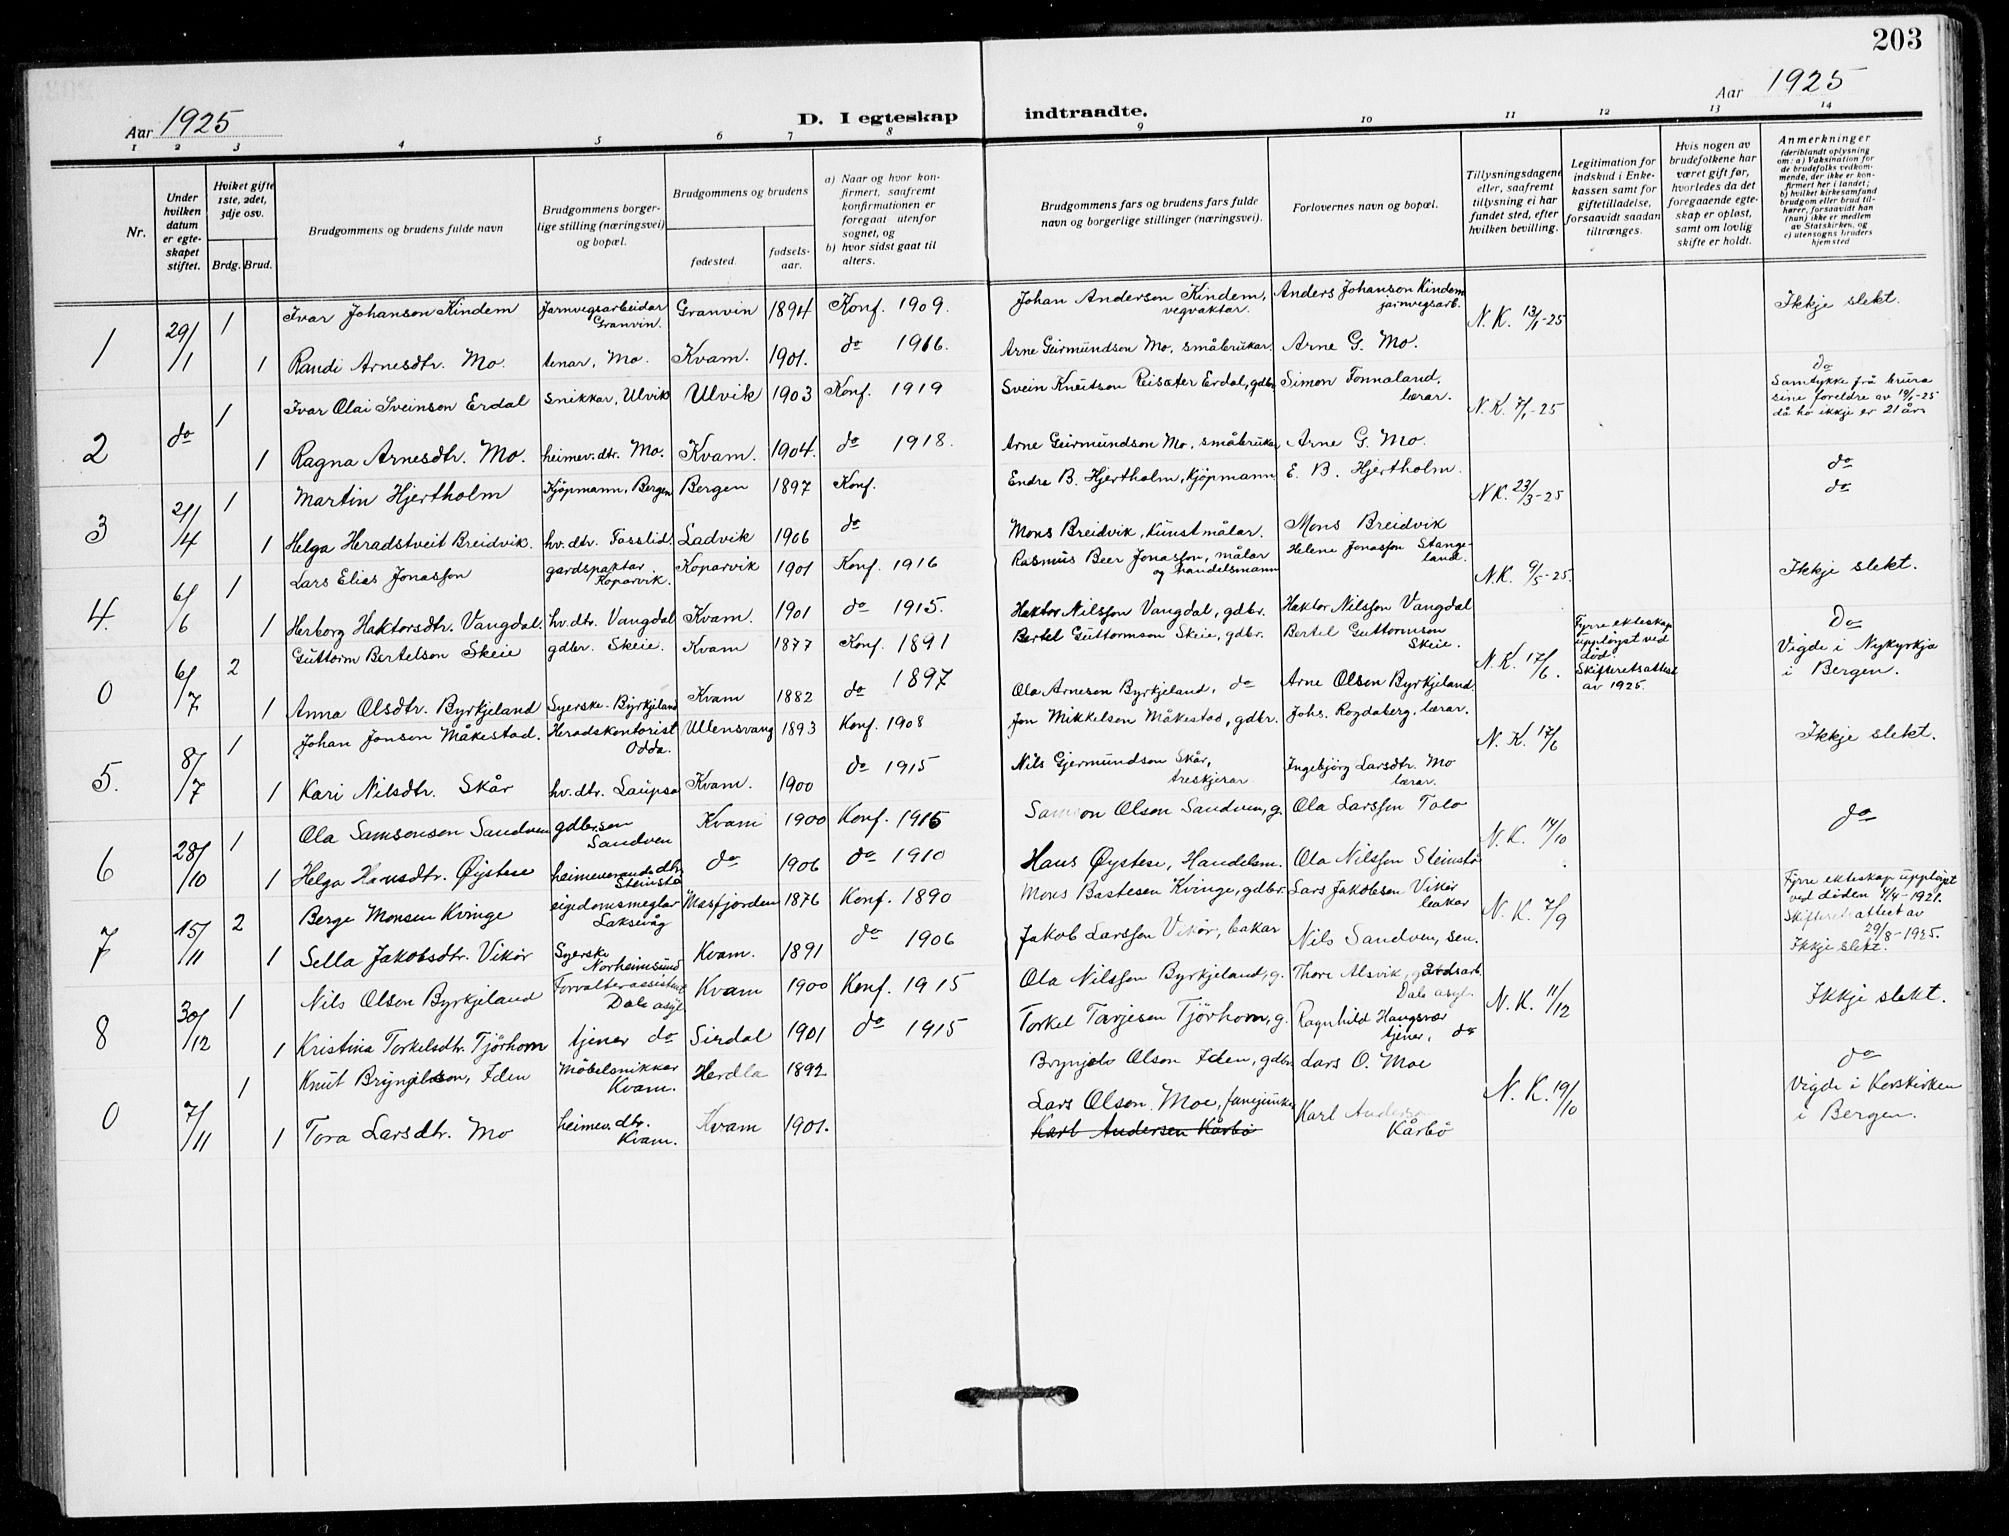 203
Aar 1925
D. I egteskap indtraadte.
Aar 1925
1 2 3 4 5 6 7 8 9 10 11 12 13 14
Nr.
Under hvilken datum er egteskapet stiftet.
Hviket gifte 1ste, 2det, 3dje osv.
Brdg. Brud.
Brudgommens og brudens fulde navn
Brudgommens borgerlige stilling (næringsvei) og bopæl.
Brudgommens og brudens
fødested.
fødselsaar.
a) Naar og hvor konfirmert, saafremt konfirmationen er foregaat utenfor sognet, og
b) hvor sidst gaat til alters.
Brudgommens fars og brudens fars fulde navn og borgerlige stillinger (næringsvei).
Forlovernes navn og bopæl.
Tillysningsdagene eller, saafremt tillysning ei har fundet sted, efter hvilken bevilling.
Legitimation for indskud i Enkekassen samt for giftetilladelse, forsaavidt saadan tiltrænges.
Hvis nogen av brudefolkene har været gift før, hvorledes da det foregaaende egteskap er opløst, samt om lovlig skifte er holdt.
Anmerkninger (deriblandt oplysning om: a) Vaksination for de brudefolks vedkommende, der ikke er konfirmert her i landet; b) hvilket kirkesamfund brudgom eller brud tilhører, forsaavidt han (hun) ikke er medlem av Statskirken, og c) utensogns bruders hjemsted
1 29/1 1 Ivar Johanson Kindem Jarnvegsarbeidar Granvin. Granvin 1894 Konf. 1909. Johan Anderson Kindem, vegvaktar. Anders Johanson Kindem jarnvegsarb. N.K. 13/1-25 Ikkje slekt.
1 Randi Arnesdtr. Mo. tenar, Mo. Kvam. 1901. do 1916. Arne Geirmundson Mo, småbrukar. Arne G. Mo.
2 do 1 Ivar Olai Sveinson Erdal Snikkar, Ulvik Ulvik 1903 Konf. 1919 Svein Knutson Reisæter Erdal, gdbr. Simon Tonnaland, lærar. N.K. 7/1-25 do Samtykke frå brura sine foreldre av 19/1-25 då ho ikkje er 21 år.
1 Ragna Arnesdtr. Mo. heimev. dtr. Mo. Kvam. 1904. do 1918. Arne Geirmundson Mo, småbrukar Arne G. Mo.
3 21/4 1 Martin Hjertholm Kjöpmann, Bergen Bergen 1897 Konf. Endre B. Hjertholm, Kjöpmann E. B. Hjertholm. N.K. 23/3-25 do do
1 Helga Heradstveit Breidvik. hv. dtr. Fosslid. Ladvik 1906 do Mons Breidvik, kunstmålar. Mons Breidvik
4. 6/6 1 Lars Elias Jonassen gardspaktar Koparvik. Koparvik 1901 Konf. 1916 Rasmus Beer Jonassen, målar og handelsmann Helene Jonassen Stangeland. N.K. 9/5-25. Ikkje slekt.
1 Herborg Haktorsdtr. Vangdal. hv. dtr. Vangdal Kvam. 1901 do 1915. Haktor Nilsson Vangdal, gdbr. Haktor Nilsson Vangdal
0 6/7 2 Guttorm Bertelson Skeie gdbr. Skeie. Kvam 1877 Konf. 1891 Bertel Guttormson Skeie, gdbr. Bertel Guttormson Skeie. N.K. 17/6. Fyrre ekteskap uppløyst ved død. Skifteretsattest av 1925. Do Vigde i Nykyrkja i Bergen.
1 Anna Olsdtr. Byrkjeland Syerske. Byrkjeland Kvam 1882 do 1897 Ola Arneson Byrkjeland, do Arne Olsen Byrkjeland.
5. 8/7 1 Johan Jonson Måkestad. Heradskontorist Odda. Ullensvang 1893 Konf. 1908 Jon Mikkelson Måkestad, gdbr. Johs. Rogdaberg, lærar. N.K. 17/6 Ikkje slekt.
1 Kari Nilsdtr. Skår hv. dtr. Laupsa Kvam. 1900 do 1915 Nils Gjermundson Skår, treskjerar. Ingebjörg Larsdtr. Mo lærar.
6 28/10 1 Ola Samsonson Sandven gdbr.son Sandven Kvam 1900 Konf. 1915 Samson Olson Sandven, g. Ola Larssen Tolo N.K. 14/10 do
1 Helga Hansdtr. Øystese heimeverande dtr. Steinstø do 1906 do 1910 Hans Øystese, Handelsm. Ola Nilsson Steinstø
7 15/11 2 Berge Monsen Kvinge eigedomsmeglar Laksevåg Masfjorden 1876 Konf. 1890 Mons Bastesen Kvinge, gdbr. Lars Jakobsen Vikör bakar N.K. 7/9 Fyrre ekteskap uppløyst ved døden 4/4-1921. Skifterett attest av 29/8-1925. Ikkje slekt.
1 Sella Jakobsdtr. Vikör Syerske Norheimsund Kvam. 1891 do 1906 Jakob Larssen Vikör, bakar Nils Sandven, sen.
8 30/12 1 Nils Olsen Byrkjeland Forvalterassistent Dale asyl Kvam 1900 Konf. 1915 Ola Nilssen Byrkjeland, g. Thore Alsvik, gardsarb. Dale asyl. N.K. 11/12 Ikkje slekt.
1 Kristina Torkelsdtr. Tjörhom tjener do Sirdal 1901 do 1915 Torkel Tarjesen Tjörhom, g. Ragnhild Haugsvær tjener, do
0 7/11 1 Knut Brynjelson, Iden Möbelsnikkar Kvam. Herdla 1892 Brynjel Olson Iden, gdbr. Lars O. Moe N.K. 19/10 do Vigde i Korskirken i Bergen.
1 Tora Larsdtr. Mo heimev. dtr. Kvam. Kvam 1901. Lars Olson Moe, fanejunker Karl Andersen Kårbø Karl Andersen Kårbø